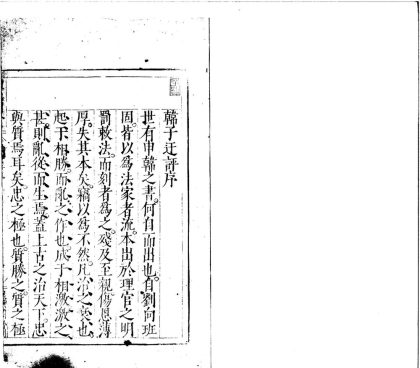 韓子迂評序
世有申韓之書何自而出也自劉向班
固皆以為法家者流本出於理官之明
罰敕法而刻者為之殘及至親傷恩薄
厚失其本矣竊以為不然凡治之衰也
起于相勝而亂之作也成于相激激之
甚則亂從而生焉蓋上古之治天下忠
與質焉耳矣忠之極也質勝之質之極